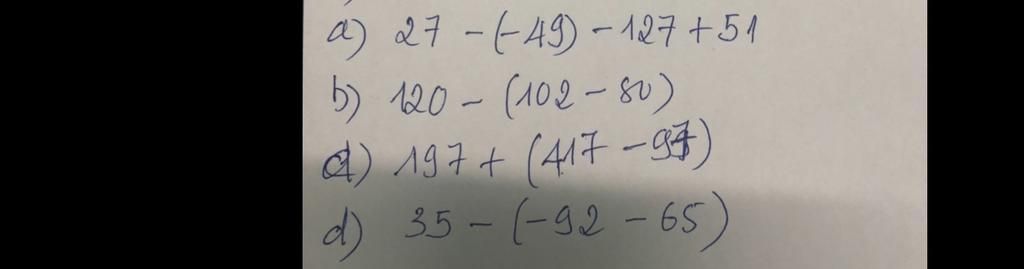 a) 27 - (-49) - 127 + 51
b) 120 - (102 - 80)
c) 197 + (417 - 97)
d) 35 - (-92 - 65)